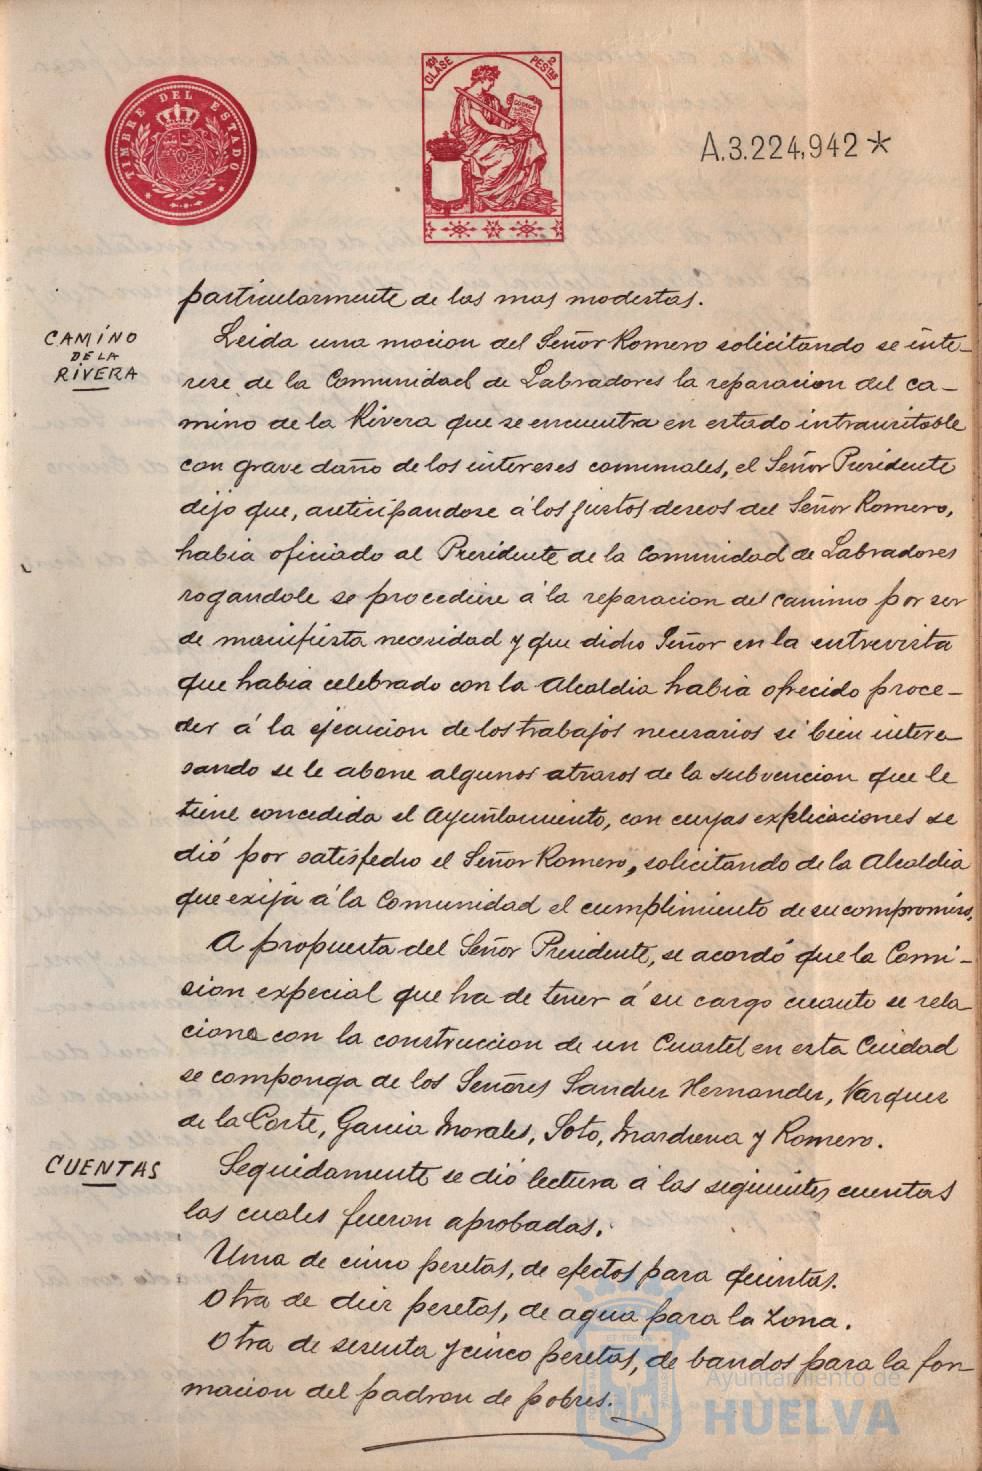 TIMBRE DEL ESTADO
10ª CLASE
2 PESTAS
CÓDIGO
A.3.224,942*
particularmente de las mas modestas.
CAMINO
DE LA
RIVERA
Leida una mocion del Señor Romero solicitando se inte-
rese de la Comunidad de Labradores la reparacion del ca-
mino de la Rivera que se encuentra en estado intransitable
con grave daño de los intereses comunales, el Señor Presidente
dijo que, anticipandose á los justos deseos del Señor Romero,
habia oficiado al Presidente de la Comunidad de Labradores
rogandole se procediese á la reparacion del camino por ser
de manifiesta necesidad y que dicho Señor en la entrevista
que habia celebrado con la Alcaldia habia ofrecido proce-
der á la ejecucion de los trabajos necesarios si bien intere-
sando se le abone algunos atrasos de la subvencion que le
tiene concedida el Ayuntamiento, con cuyas explicaciones se
dió por satisfecho el Señor Romero, solicitando de la Alcaldia
que exija á la Comunidad el cumplimiento de su compromiso.
A propuesta del Señor Presidente, se acordó que la Comi-
sion especial que ha de tener á su cargo cuanto se rela
ciona con la construccion de un Cuartel en esta Ciudad
se componga de los Señores Sanchez Hernandez, Vazquez
de la Corte, Garcia Morales, Soto, Mardrena y Romero.
CUENTAS
Seguidamente se dió lectura á las siguientes cuentas
las cuales fueron aprobadas.
Una de cinco pesetas, de efectos para quintas.
Otra de diez pesetas, de agua para la Zona.
Otra de sesenta y cinco pesetas, de bandos para la for-
macion del padron de pobres.
Ayuntamiento de
HUELVA